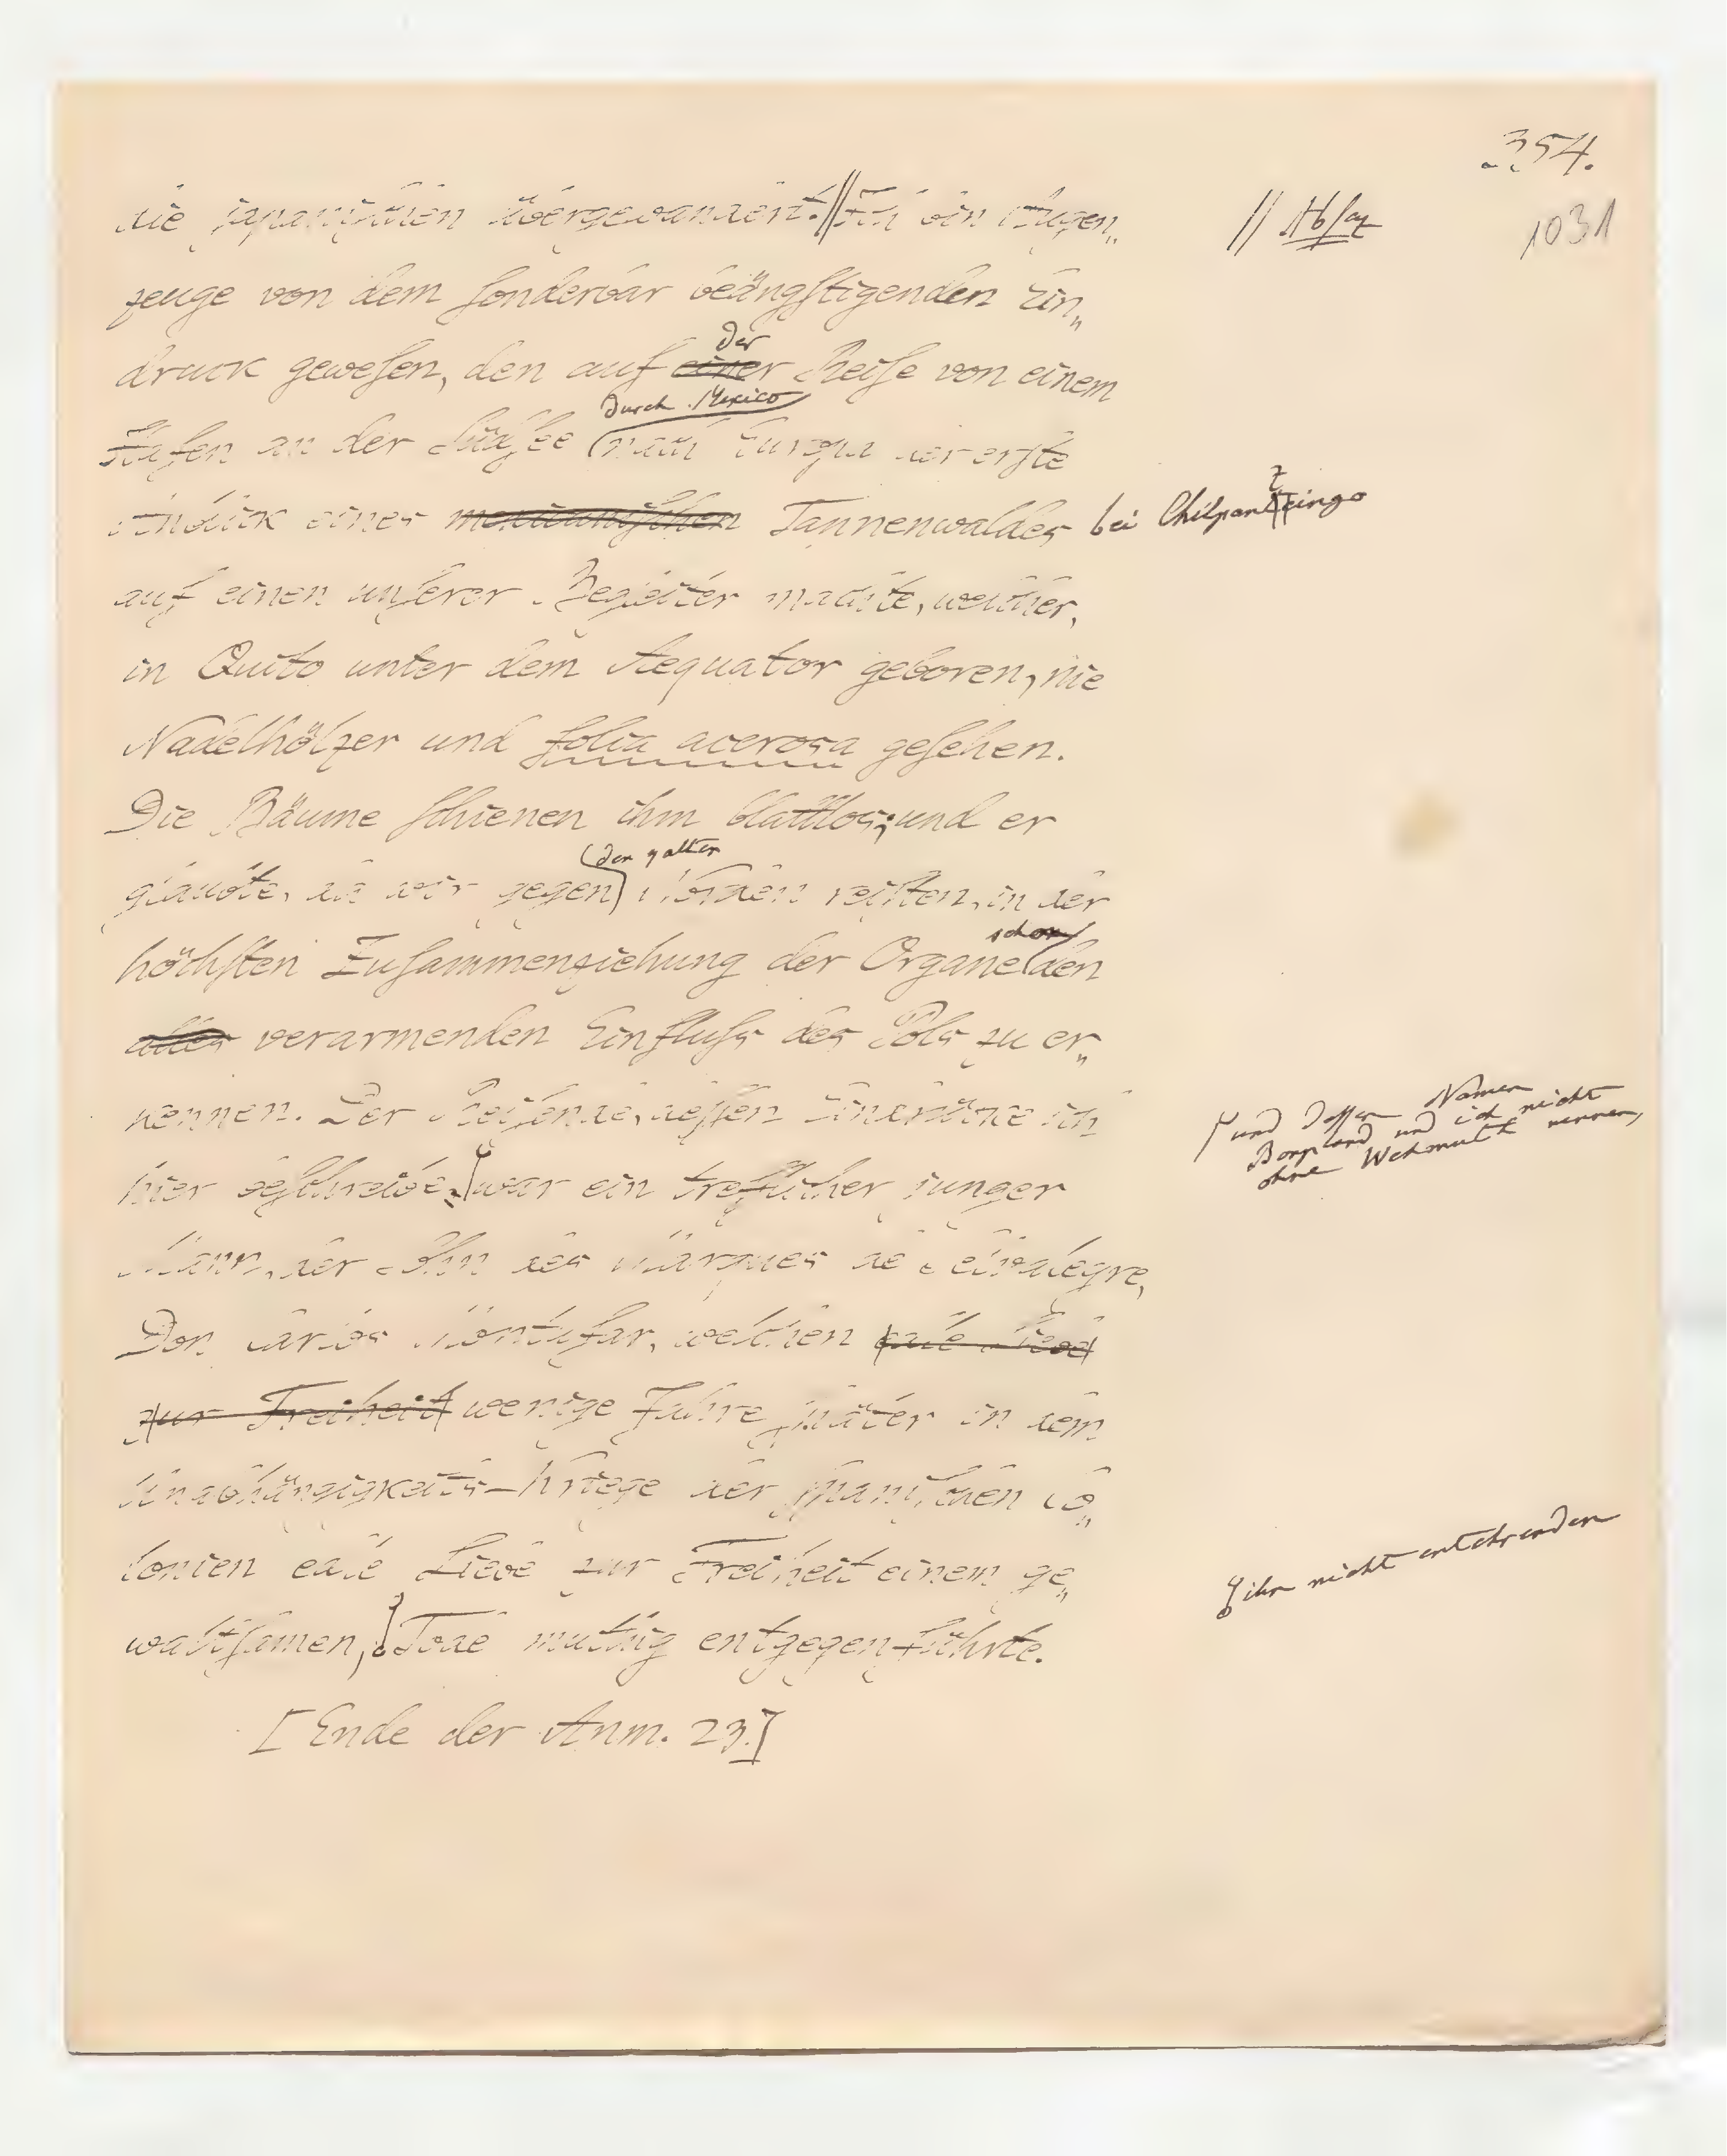 354.
1031
die japanischen übergewandert. // Ich bin Augen„
// Absaz
zeuge von dem sonderbar beängstigenden Ein„
der
druck gewesen, den auf einer Reise von einem
durch Mexico
Hafen an der Südsee nach Europa der erste
Anblick eines mexicanischen Tannenwaldes bei Chilpantzingo
auf einen unserer Begleiter machte, welcher,
in Quito unter dem Aequator geboren, nie
Nadelhölzer und folia acerosa gesehen.
Die Bäume schienen ihm blattlos; und er
glaubte, da wir gegen Norden reisten, in der
schon
höchsten Zusammenziehung der Organe den
alles verarmenden Einfluss des Pols zu er„
kennen. Der Reisende, dessen Eindrücke ich
und dessen Namen
Bonpland und ich nicht
ohne Wehmuth nennen,
hier beschreibe, war ein treflicher junger
Mann, der Sohn des Marques de Selvalegre,
Don Carlos Montufar, welchen edle Liebe
zur Freiheit wenige Jahre später in dem
Unabhängigkeits-Kriege der spanischen Co„
lonien edle Liebe zur Freiheit einem ge„
ihn nicht entehrenden
waltsamen, Tode muthig entgegenführte.
[Ende der Anm. 23.]